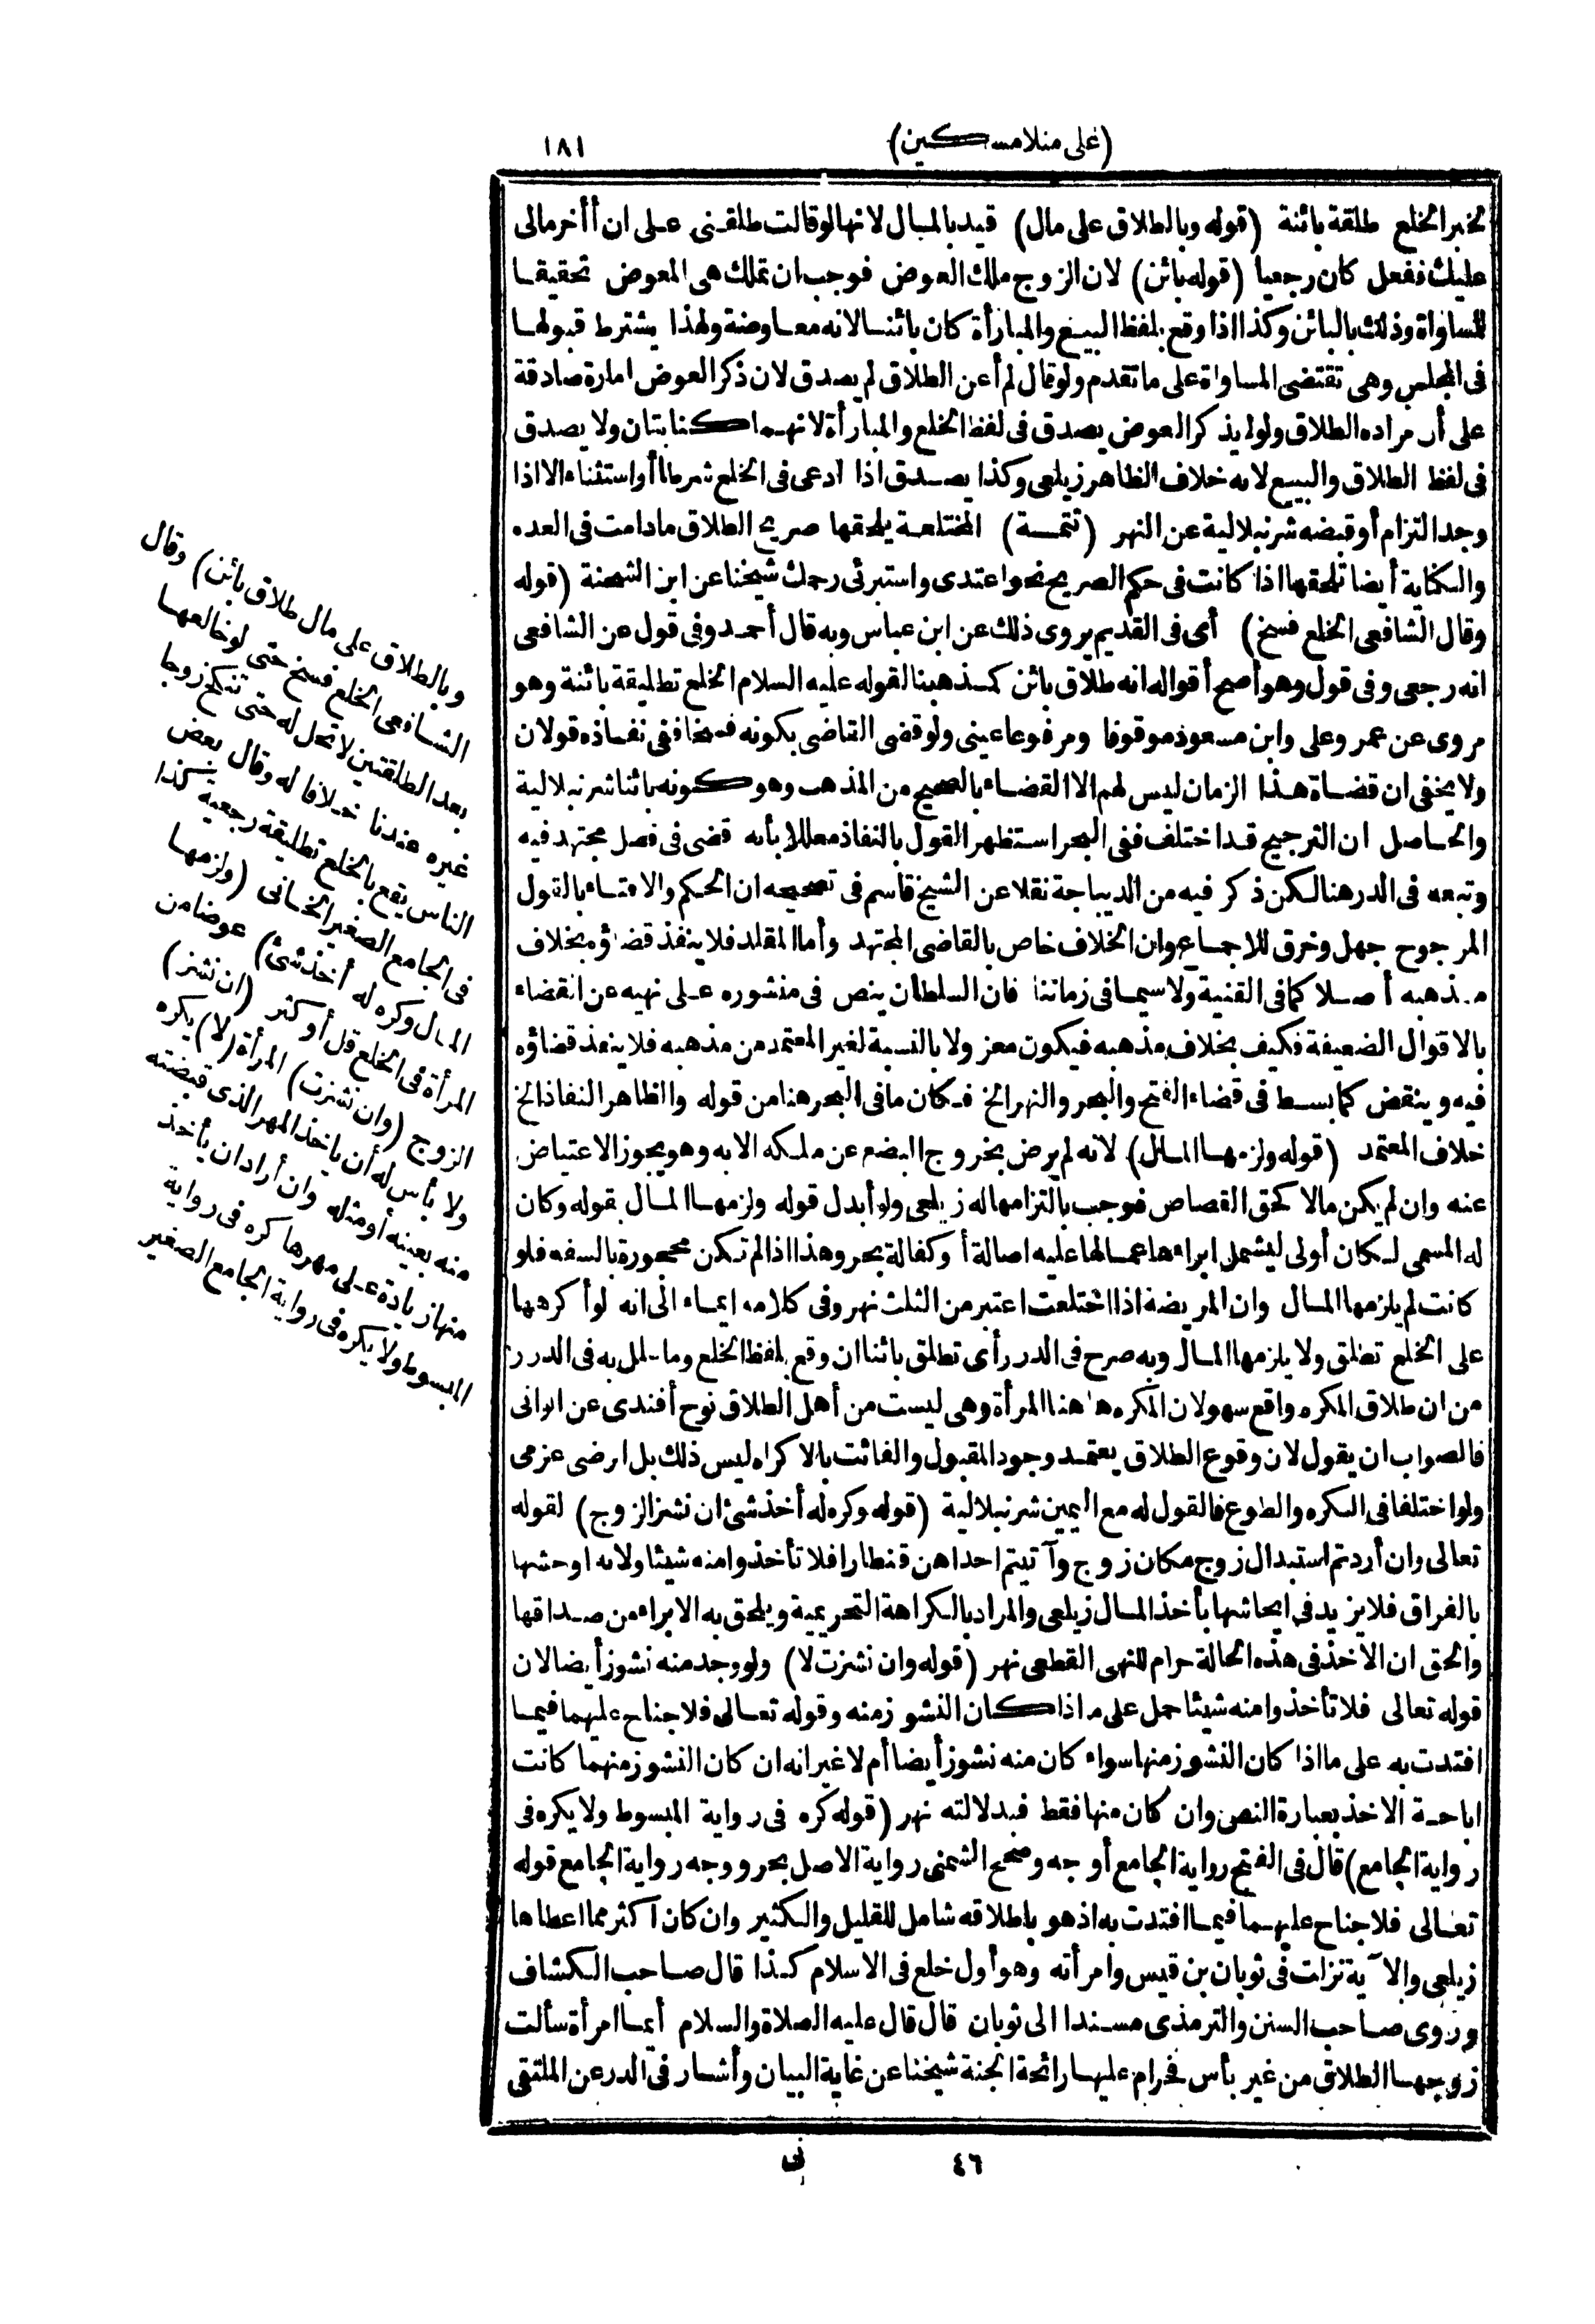 (على منلا مسكين)
١٨١
لخبر الخلع طلقة بائنة (قوله وبالطلاق على مال) قيد بالمال لانها لو قالت طلقنى على ان أأخر مالى
عليك ففعل كان رجعيا (قوله بائن) لان الزوج ملك العوض فوجب ان تملك هى المعوض تحقيقا
للمساواة وذلك بالبائن وكذا اذا وقع بلفظ البيع والمبارأة كان بائنا لانه معاوضة ولهذا يشترط قبولها
فى المجلس وهى تقتضى المساواة على ما تقدم ولو قال لم أعن الطلاق لم يصدق لان ذكر العوض امارة صادقة
على أن مراده الطلاق ولو لم يذكر العوض يصدق فى لفظ الخلع والمبارأة لانهما كنايتان ولا يصدق
فى لفظ الطلاق والبيع لانه خلاف الظاهر زيلعى وكذا يصدق اذا ادعى فى الخلع شرطا أو استثناء الا اذا
وجد التزام أو قبضه شرنبلالية عن النهر (تتمة) المختلعة يلحقها صريح الطلاق مادامت فى العده
والكناية أيضا تلحقها اذا كانت فى حكم الصريح نحو اعتدى واستبرئى رحمك شيخنا عن ابن الشحنة (قوله
وقال الشافعى الخلع فسخ) أى فى القديم يروى ذلك عن ابن عباس وبه قال أحمد وفى قول عن الشافعى
انه رجعى وفى قول وهو أصح أقواله انه طلاق بائن كمذهبنا لقوله عليه السلام الخلع تطليقة بائنة وهو
مروى عن عمر وعلى وابن مسعود موقوفا ومرفوعا عينى ولو قضى القاضى بكونه فسخا ففى نفاذه قولان
ولا يخفى ان قضاة هذا الزمان ليس لهم الا القضاء بالصحيح من المذهب وهو كونه بائنا شرنبلالية
والحاصل ان الترجيح قد اختلف ففى البحر استظهر القول بالنفاذ معللا بأنه قضى فى فصل مجتهد فيه
وتبعه فى الدر هنا لكن ذكر فيه من الديباجة نقلا عن الشيخ قاسم فى تصحيحه ان الحكم والافتاء بالقول
المرجوح جهل وخرق للاجماع وان الخلاف خاص بالقاضى المجتهد وأما المقلد فلا ينفذ قضاؤه بخلاف
مذهبه أصلا كما فى القنية ولا سيما فى زماننا فان السلطان ينص فى منشوره على نهيه عن القضاء
بالاقوال الضعيفة فكيف بخلاف مذهبه فيكون معزولا بالنسبة لغير المعتمد من مذهبه فلا ينفذ قضاؤه
فيه وينقض كما بسط فى قضاء الفتح والبحر والنهر الخ فكان ما فى البحر هنا من قوله والظاهر النفاذ الخ
خلاف المعتمد (قوله ولزمها المال) لانه لم يرض بخروج البضع عن ملكه الا به وهو يجوز الاعتياض
عنه وان لم يكن مالا كحق القصاص فوجب بالتزامها له زيلعى ولو أبدل قوله ولزمها المال بقوله وكان
له المسمى لكان أولى ليشمل ابراءها عما لها عليه اصالة أو كفالة بحر وهذا اذا لم تكن محجورة بالسفه فلو
كانت لم يلزمها المال وان المريضة اذا اختلعت اعتبر من الثلث نهر وفى كلامه ايماء الى انه لو أكرهها
على الخلع تطلق ولا يلزمها المال وبه صرح فى الدرر أى تطلق بائنا ان وقع بلفظ الخلع وما علل به فى الدرر
من ان طلاق المكره واقع سهو لان المكره هاهنا المرأة وهى ليست من أهل الطلاق نوح أفندى عن الوانى
فالصواب ان يقول لان وقوع الطلاق يعتمد وجود المقبول والفائت بالاكراه ليس ذلك بل الرضى عزمى
ولو اختلفا فى الكره والطوع فالقول له مع اليمين شرنبلالية (قوله وكره له أخذ شئ ان نشز الزوج) لقوله
تعالى وان أردتم استبدال زوج مكان زوج وآتيتم احداهن قنطارا فلا تأخذوا منه شيئا ولانه اوحشها
بالفراق فلا يزيد فى ايحاشها بأخذ المال زيلعى والمراد بالكراهة التحريمية ويلحق به الابراء من صداقها
والحق ان الاخذ فى هذه الحالة حرام للنهى القطعى نهر (قوله وان نشزت لا) ولو وجد منه نشوز أيضا لان
قوله تعالى فلا تأخذوا منه شيئا حمل على ما اذا كان النشوز منه وقوله تعالى فلا جناح عليهما فيما
افتدت به على ما اذا كان النشوز منها سواء كان منه نشوز أيضا أم لا غير انه ان كان النشوز منهما كانت
اباحة الاخذ بعبارة النص وان كان منها فقط فبدلالته نهر (قوله كره فى رواية المبسوط ولا يكره فى
رواية الجامع) قال فى الفتح رواية الجامع أوجه وصحح الشمنى رواية الاصل بحر ووجه رواية الجامع قوله
تعالى فلا جناح عليهما فيما افتدت به اذ هو باطلاقه شامل للقليل والكثير وان كان اكثر مما اعطاها
زيلعى والآية نزلت فى ثوبان بن قيس وامرأته وهو أول خلع فى الاسلام كذا قال صاحب الكشاف
وروى صاحب السنن والترمذى مسندا الى ثوبان قال قال عليه الصلاة والسلام أيما امرأة سألت
زوجها الطلاق من غير بأس فحرام عليها رائحة الجنة شيخنا عن غاية البيان وأشار فى الدر عن الملتقى
وبالطلاق على مال طلاق بائن) وقال
الشافعى الخلع فسخ حتى لو خالعها
بعد الطلقتين لا تحل له حتى تنكح زوجا
غيره عندنا خلافا له وقال بعض
الناس يقع بالخلع تطليقة رجعية كذا
فى الجامع الصغير الخانى (ولزمها
المال وكره له أخذ شئ) عوضا من
المرأة فى الخلع قل أو كثر (ان نشز)
الزوج (وان نشزت) المرأة (لا) يكره
ولا بأس له أن ياخذ المهر الذى قبضته
منه بعينه أو مثله وان أراد ان يأخذ
منها زيادة على مهرها كره فى رواية
المبسوط ولا يكره فى رواية الجامع الصغير
٤٦
نى